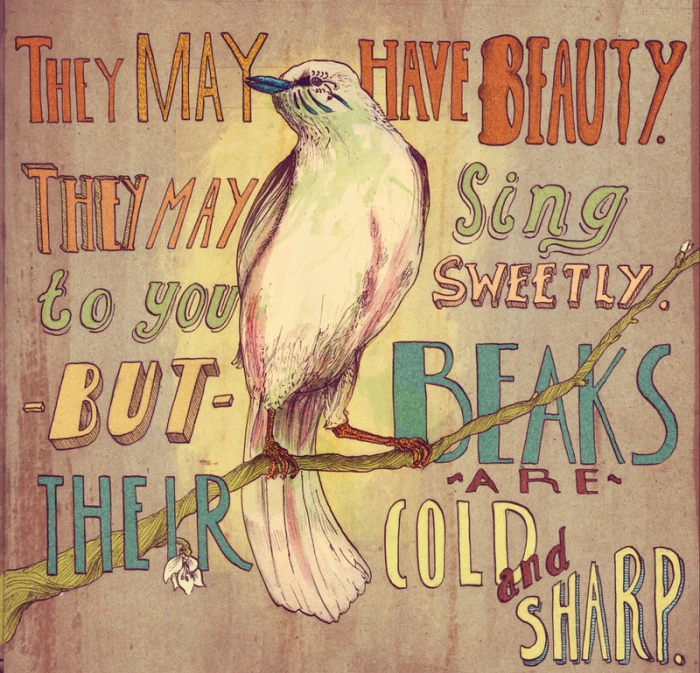 They MAY HAVE BEAUTY.
THEY MAY Sing
to you SWEETLY.
-BUT- BEAKS
THEIR ~ARE~
COLD and
SHARP.